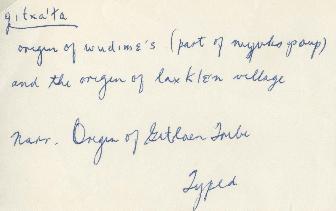 gitxa'ta
origin of wudime's (part of group)
and the origin of laxklEn village
Narr. Origin of Gitlaen Tribe
Typed